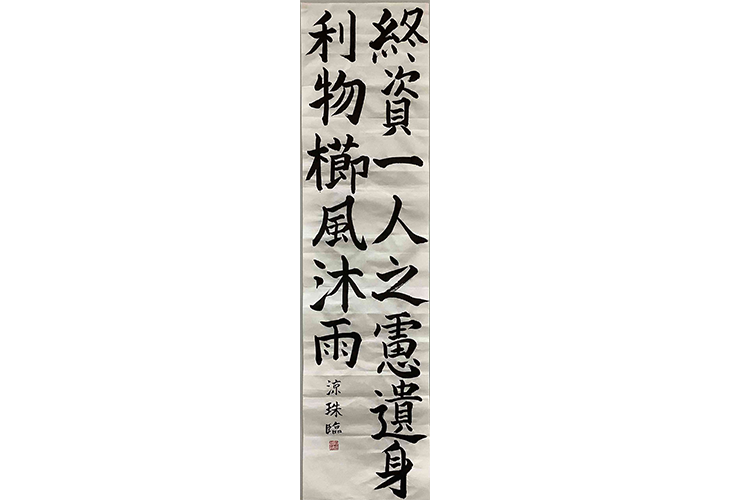 終資一人之慮遺身
利物櫛風沐雨
涼珠臨